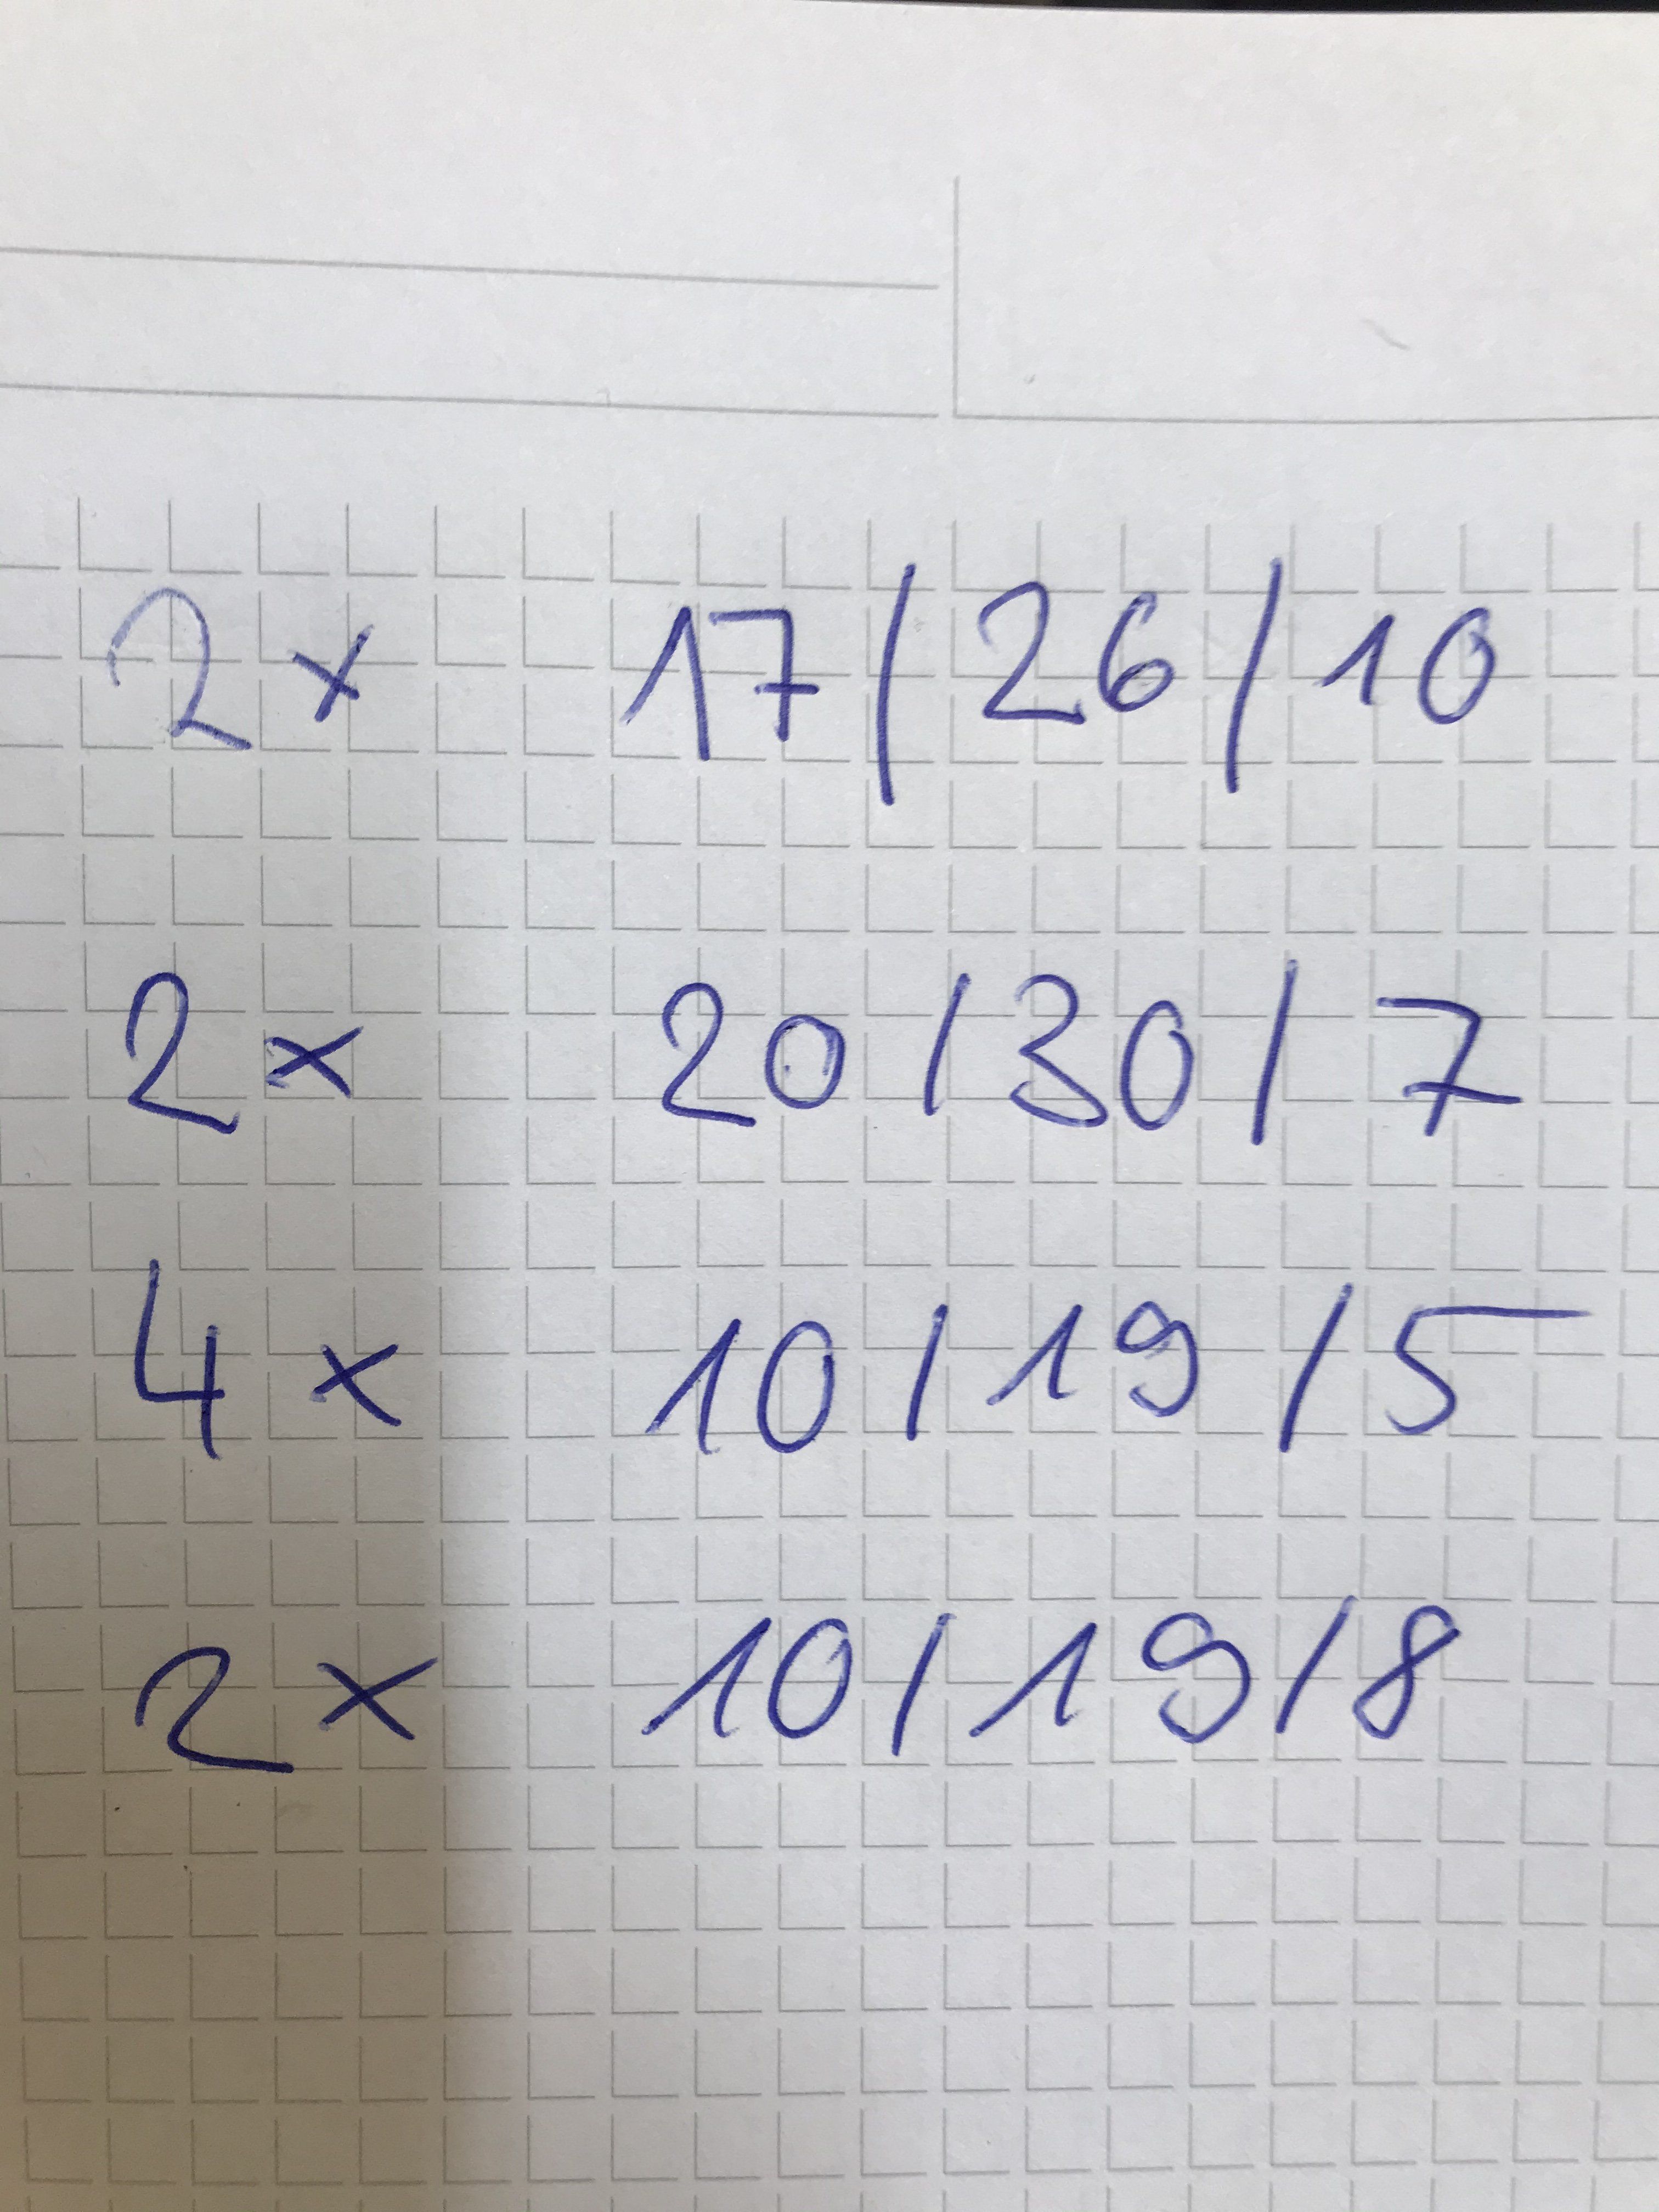 2 x 17/26/10
2 x 20/30/7
4 x 10/19/5
2 x 10/19/8